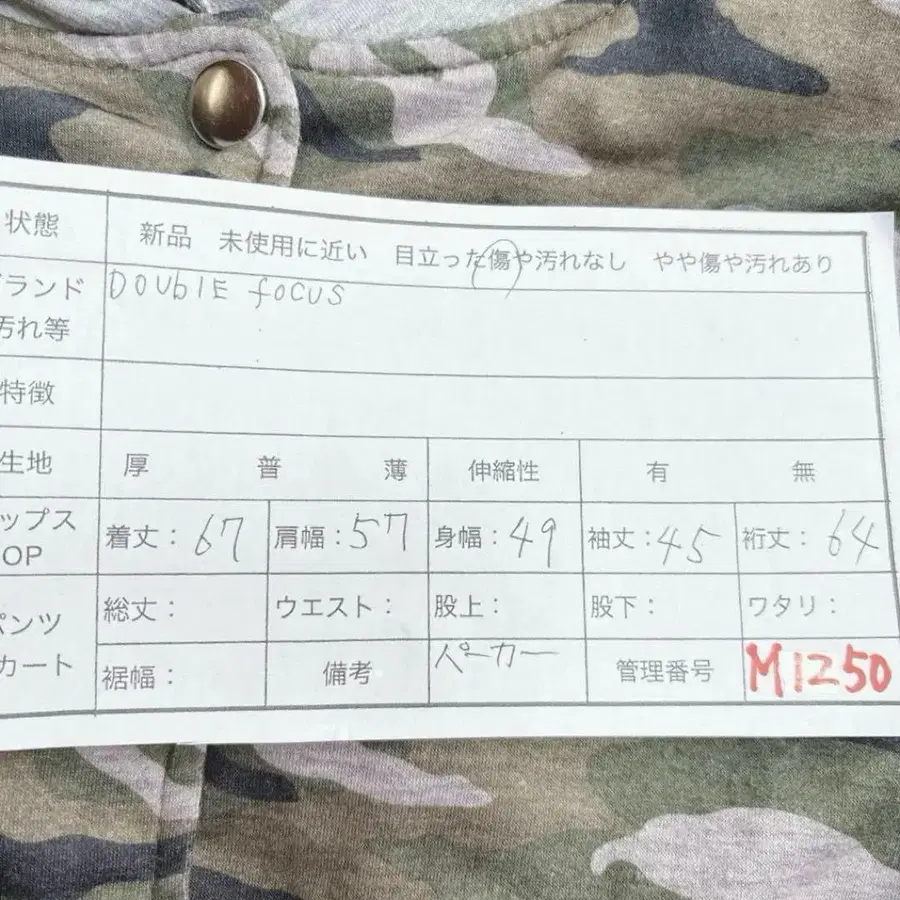 状態 新品 未使用に近い 目立った傷や汚れなし やや傷や汚れあり
ブランド DOUblE focus
汚れ等
特徴
生地 厚 普 薄 伸縮性 有 無
ップス 着丈：67 肩幅：57 身幅：49 袖丈：45 裄丈：64
OP
パンツ 総丈： ウエスト： 股上： 股下： ワタリ：
カート 裾幅： 備考 パーカー 管理番号 M1250